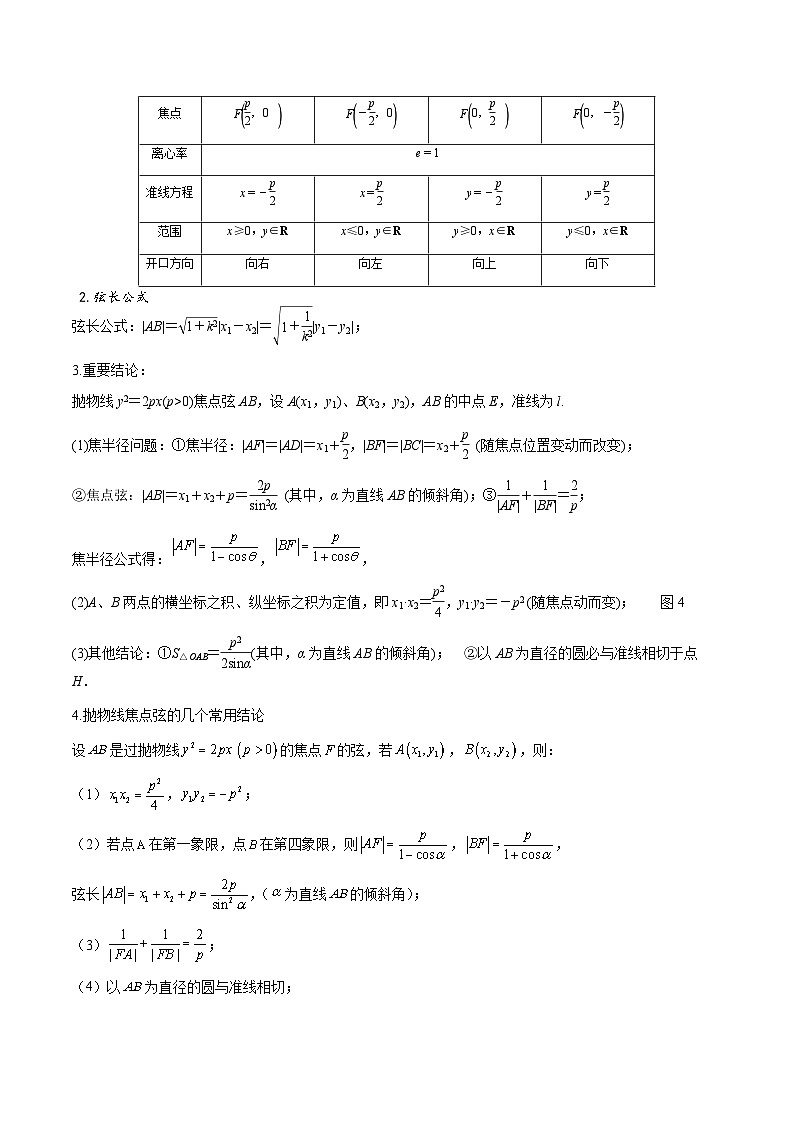 焦点 F(p/2, 0) F(−p/2, 0) F(0, p/2) F(0, −p/2)
离心率 e=1
准线方程 x=−p/2 x=p/2 y=−p/2 y=p/2
范围 x≥0,y∈R x≤0,y∈R y≥0,x∈R y≤0,x∈R
开口方向 向右 向左 向上 向下
2.弦长公式
弦长公式:|AB|=√(1+k²)|x₁-x₂|=√(1+1/k²)|y₁-y₂|;
3.重要结论:
抛物线 y²=2px(p>0)焦点弦 AB,设 A(x₁,y₁)、B(x₂,y₂),AB 的中点 E,准线为 l.
(1)焦半径问题:①焦半径:|AF|=|AD|=x₁+p/2,|BF|=|BC|=x₂+p/2 (随焦点位置变动而改变);
②焦点弦:|AB|=x₁+x₂+p=2p/sin²α (其中,α 为直线 AB 的倾斜角);③1/|AF|+1/|BF|=2/p;
焦半径公式得:|AF|=p/(1−cosθ),|BF|=p/(1+cosθ),
(2)A、B 两点的横坐标之积、纵坐标之积为定值,即 x₁·x₂=p²/4,y₁·y₂=-p²(随焦点动而变); 图 4
(3)其他结论:①S△OAB=p²/(2sinα)(其中,α 为直线 AB 的倾斜角); ②以 AB 为直径的圆必与准线相切于点
H.
4.抛物线焦点弦的几个常用结论
设 AB 是过抛物线 y²=2px(p>0) 的焦点 F 的弦,若 A(x₁,y₁),B(x₂,y₂),则:
(1)x₁x₂=p²/4,y₁y₂=−p²;
(2)若点 A 在第一象限,点 B 在第四象限,则|AF|=p/(1−cosα),|BF|=p/(1+cosα),
弦长|AB|=x₁+x₂+p=2p/sin²α,(α 为直线 AB 的倾斜角);
(3)1/|FA|+1/|FB|=2/p;
(4)以 AB 为直径的圆与准线相切;